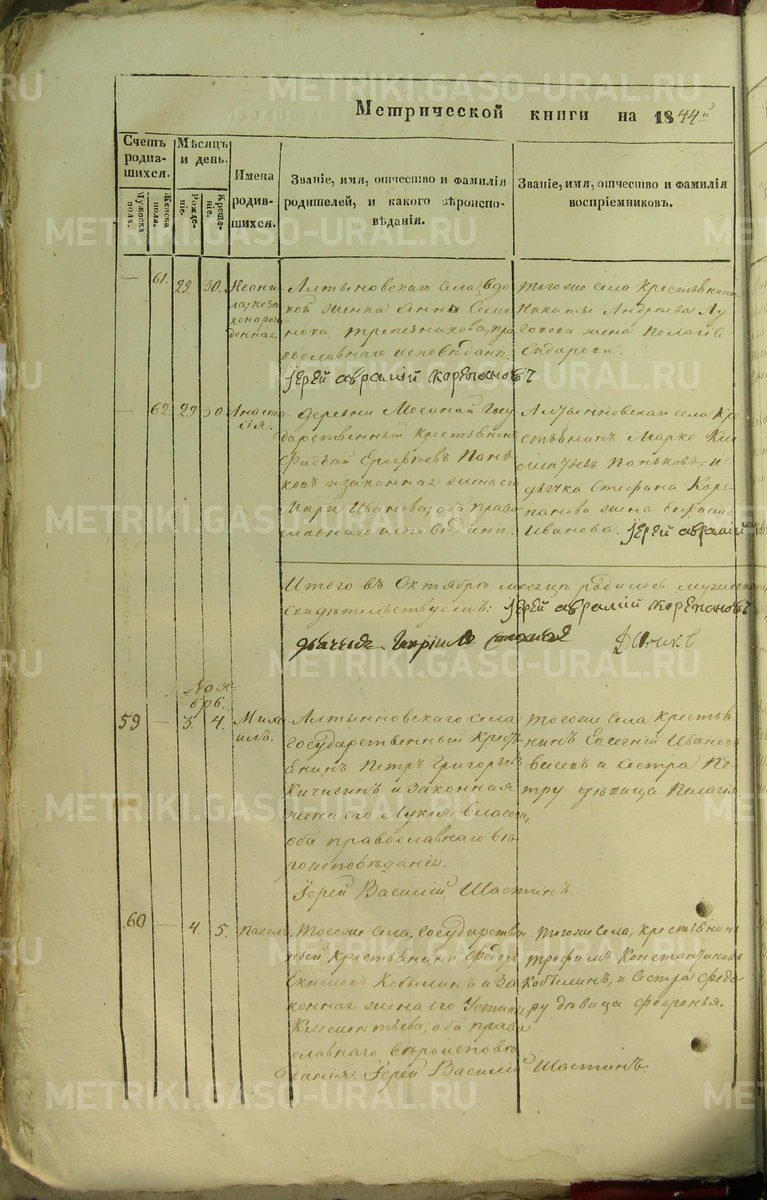 Метрической книги на 1844й
Счетъ родившихся.
Мужеска пола.
Женска пола.
Мѣсяцъ и день.
Рожденіе.
Крещеніе.
Имена родившихся.
Званіе, имя, отчество и фамилія родителей, и какого вѣроисповѣданія.
Званіе, имя, отчество и фамилія воспріемниковъ.
— 61. 29. 30.
Неони
ла, неза
конорож
денная
Алтыновскаго села, вдо
вой женка Анна Семе
нова
православнаго исповѣдан.
Іерей Аврамій Корепановъ
тогоже села крестьянина
Никиты Андреева Лу
гова жена Пелагія
Сидарова.
— 62. 29 30
Анаста
сія.
деревни Мосиной Госу
дарственный крестьянинъ
Фадѣй Ерофѣевъ Пань
ковъ и законная жена его
Марія Иванова; оба право
славнаго исповѣдан.
Алтынновскаго села кре
стьянинъ Марко Кли
ментьевъ Паньковъ, и
дьячка Стефана Коре
панова жена
Иванова. Іерей Аврамій
Итого въ Октябрѣ мѣсяцѣ родилось мужеска
Свидѣтельствуемъ: Іерей Аврамій Корепановъ
Ноя-
брь.
59 — 3. 4.
Миха
илъ.
Алтынновскаго села
государственный кресть
янинъ Петръ Григорьевъ
Кичигинъ и законная
жена его Лукія Власова,
оба православнаго вѣ
роисповѣданія.
Іерей Василій Шастинъ.
тогоже села крестья
нинъ Евгений Ивановъ
и сестра Пе
тру дѣвица Пелагія
60 — 4. 5.
Павелъ.
Тогоже села, государствен
ный крестьянинъ Федоръ
Екимовъ Кобылинъ и за
конная жена его Устинья
Климентьева; оба право
славнаго вѣроисповѣ
данія. Іерей Василій Шастинъ.
тогоже села, крестьянинъ
Трофимъ Константиновъ
Кобылинъ, и сестра Федо
ру дѣвица Февронья.
METRIKI.GASO-URAL.RU